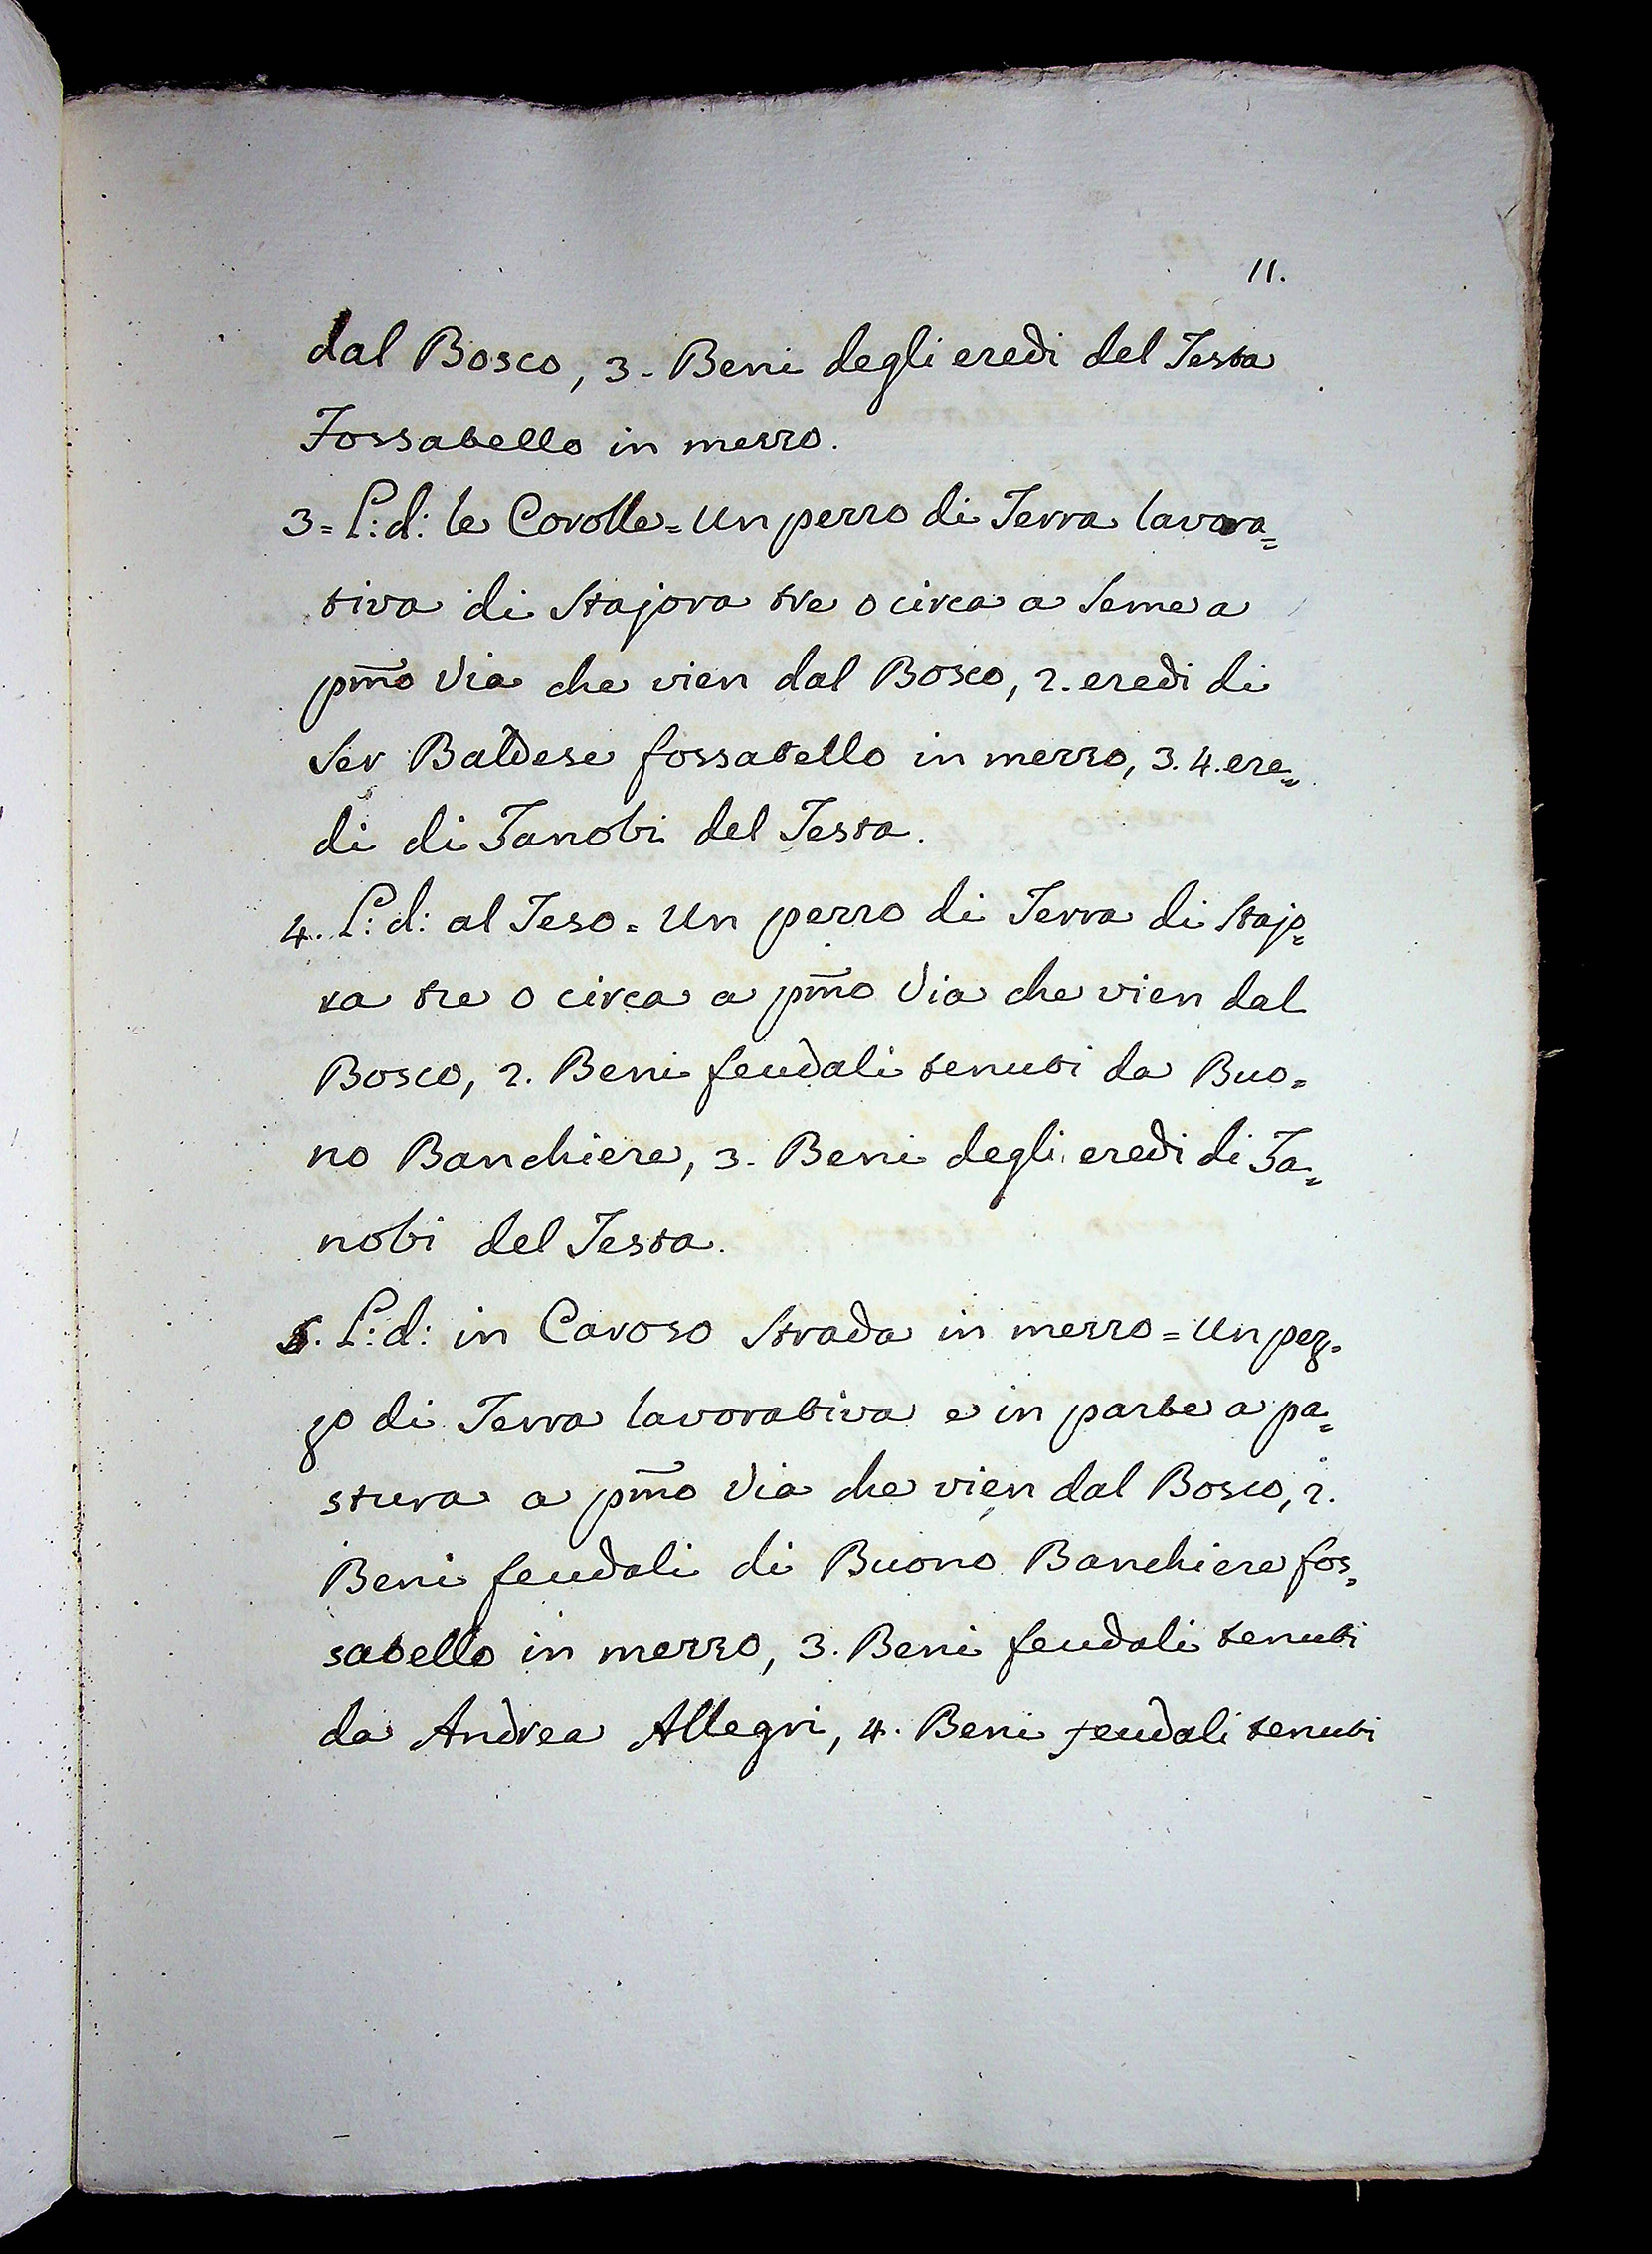 11.
dal Bosco, 3. Beni degli eredi del Testa
Fossatello in mezzo.
3= L: d: le Corolle= Un pezzo di Terra lavora=
tiva di Stajora tre o circa a Seme a
pm̃o Via che vien dal Bosco, 2. eredi di
Ser Baldese fossatello in mezzo, 3. 4. ere=
di di Zanobi del Testa.
4. L: d: al Teso= Un pezzo di Terra di Stajo=
ra tre o circa a pm̃o Via che vien dal
Bosco, 2. Beni feudali tenuti da Buo=
no Banchiere, 3. Beni degli eredi di Za=
nobi del Testa.
5. L: d: in Caroso Strada in mezzo= Un pez=
zo di Terra lavorativa e in parte a pa=
stura a pm̃o Via che vien dal Bosco, 2.
Beni feudali di Buono Banchiere fos=
satello in mezzo, 3. Beni feudali tenuti
da Andrea Allegri, 4. Beni feudali tenuti